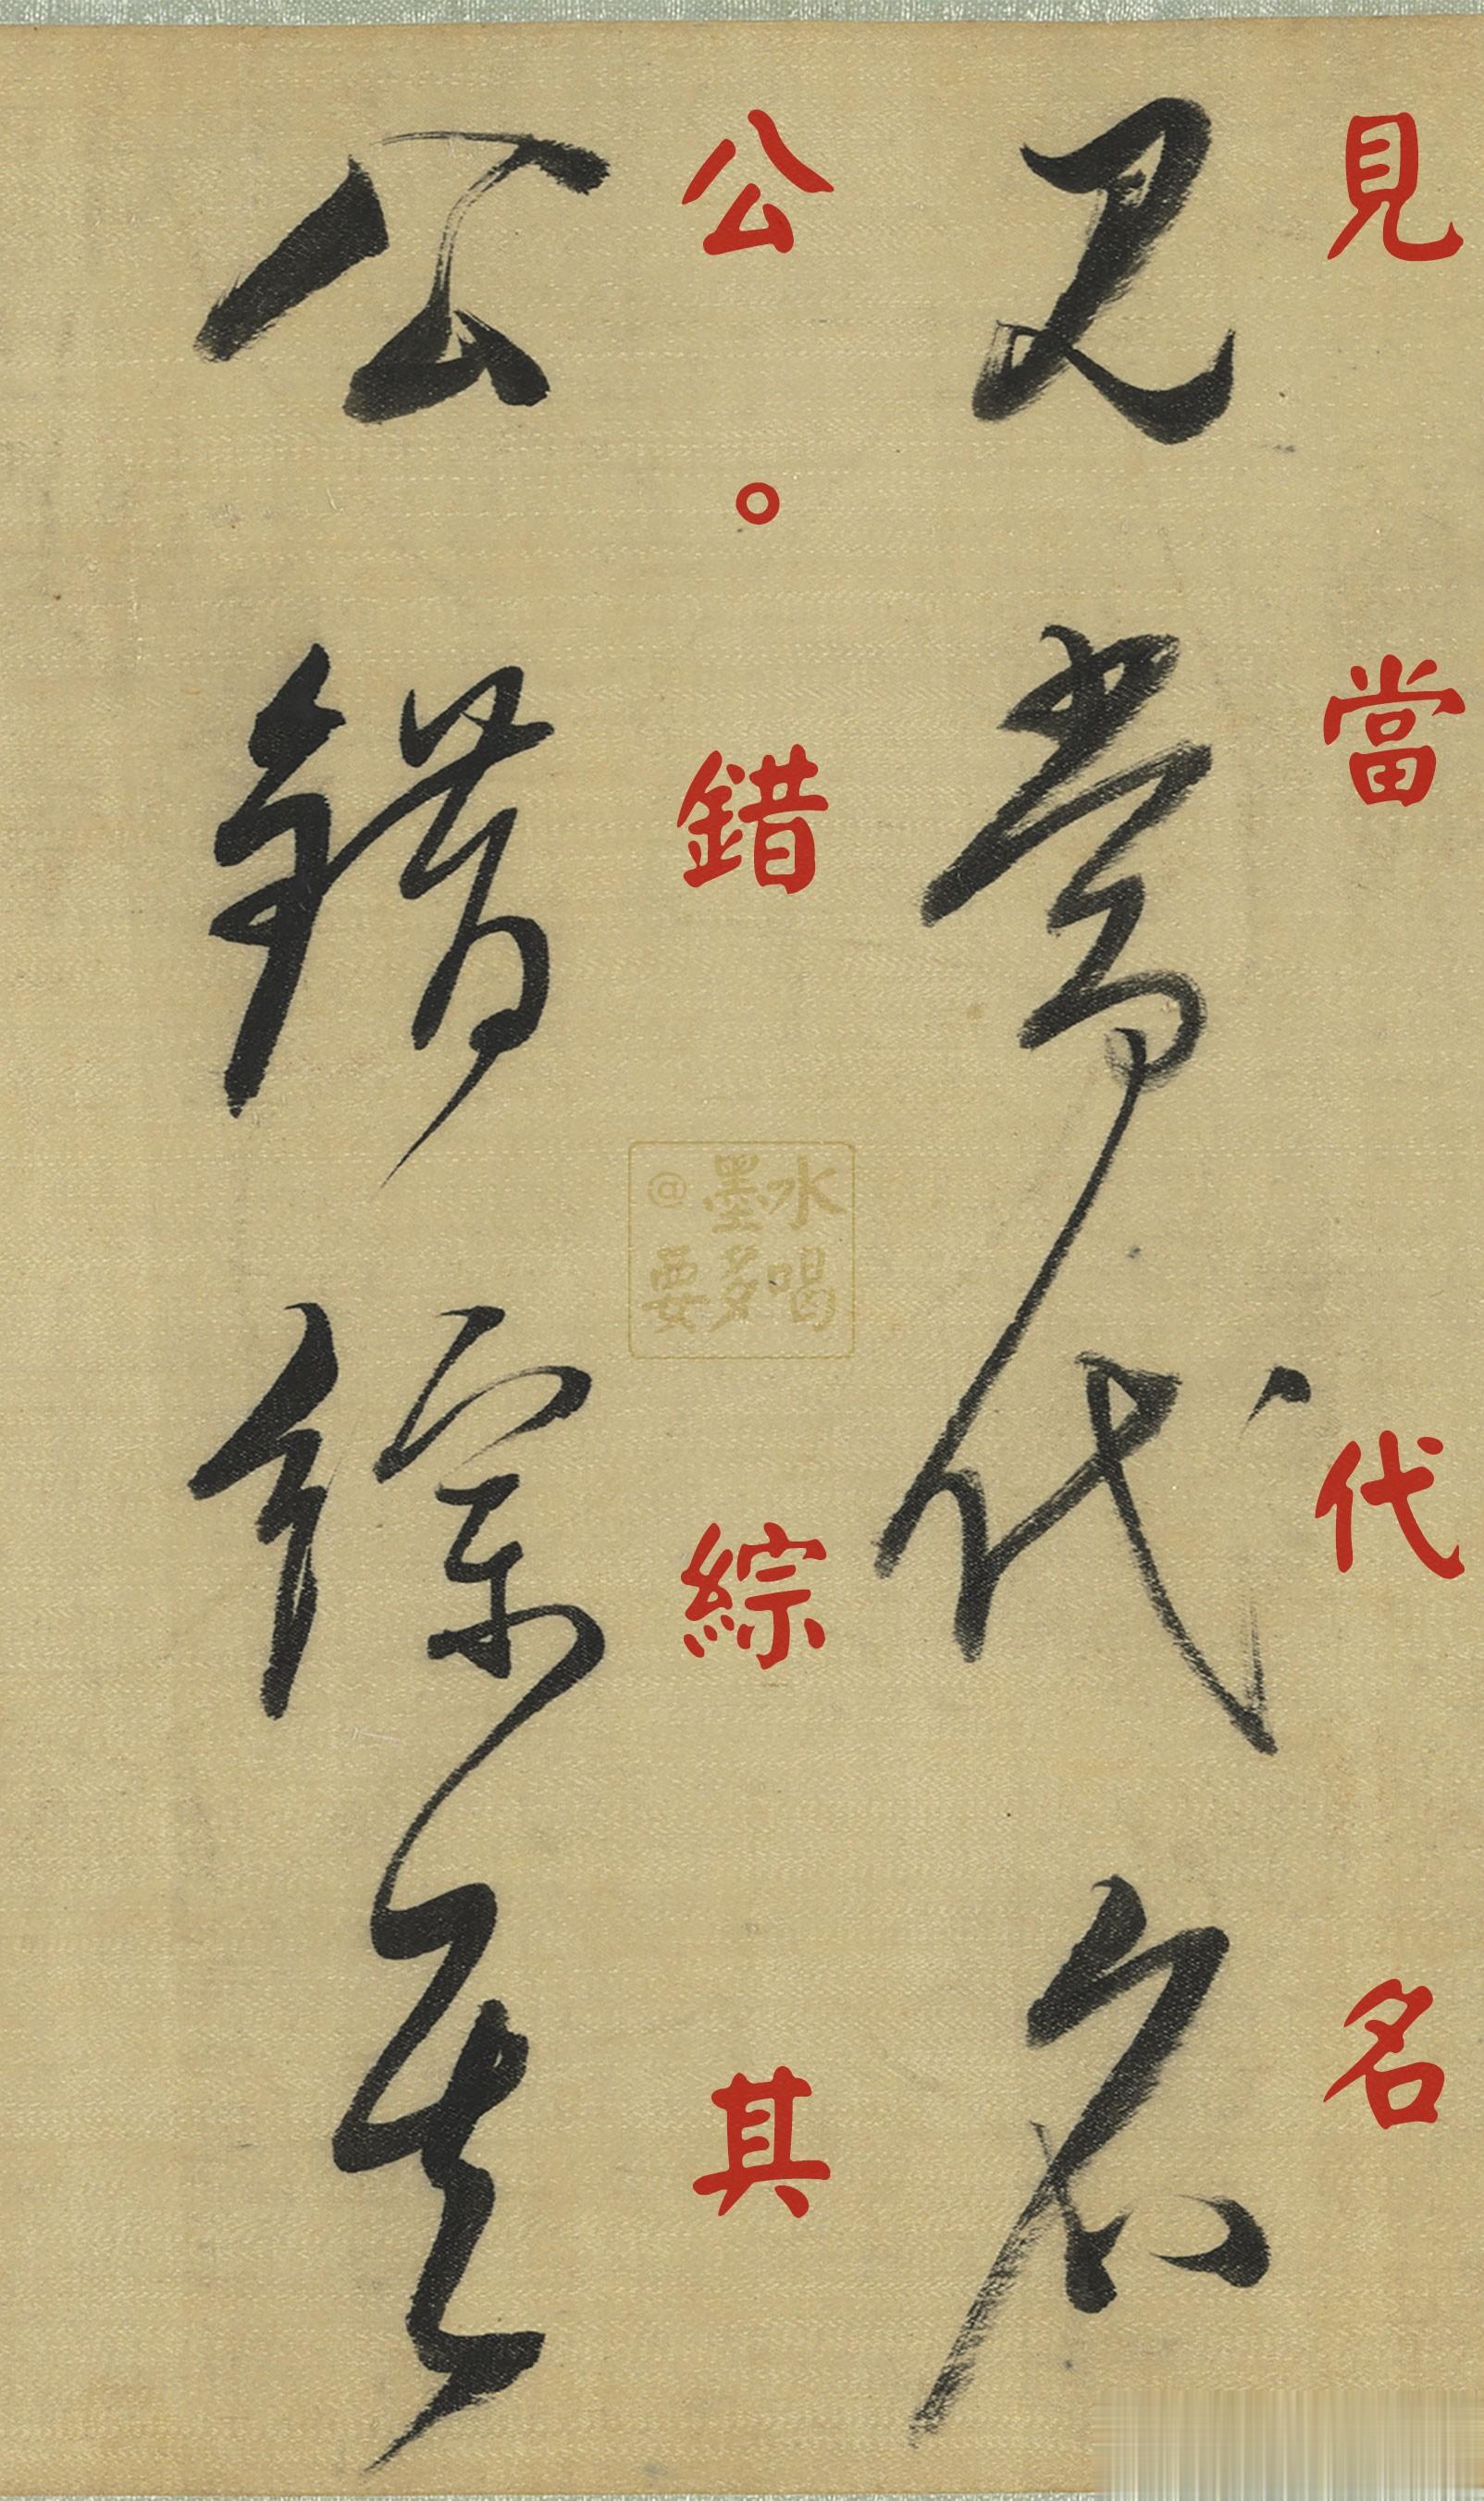 見當代名
見當代名
公。錯綜其
公錯綜其
@墨水
要多喝